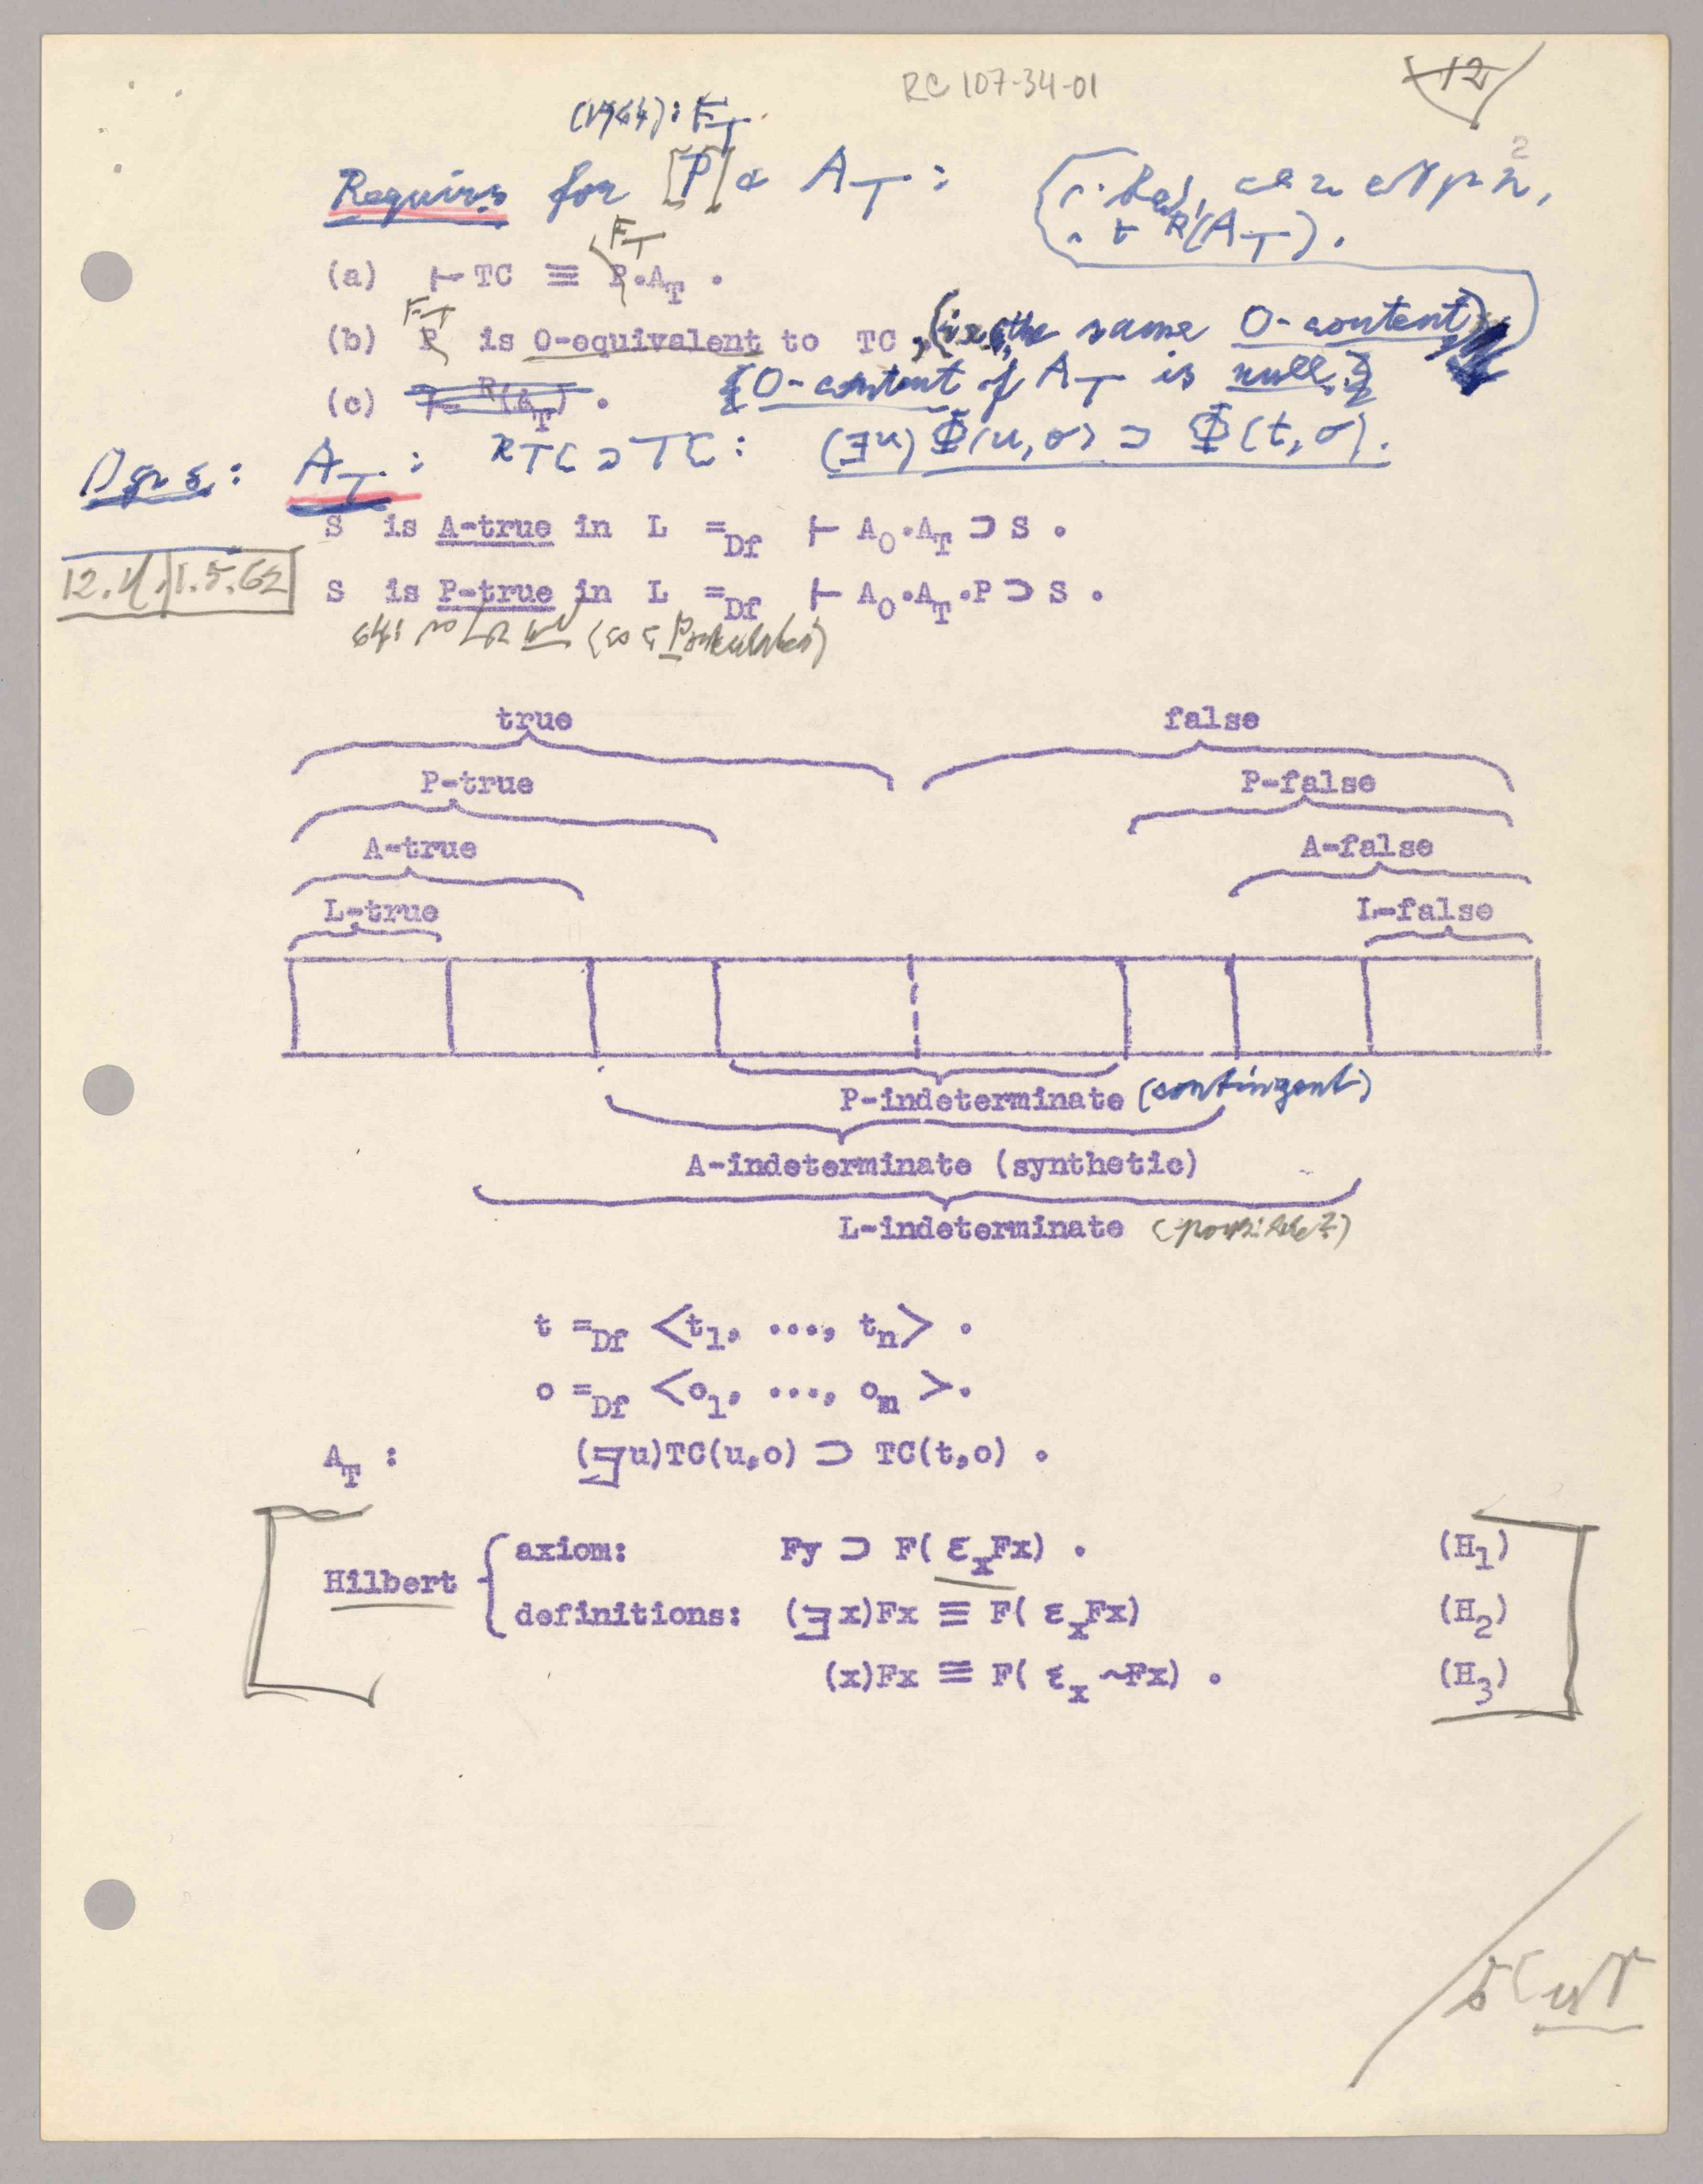 RC 107-34-01
12
2
(1964): F_T.
Requirs for [P] & A_T :
R(A_T).
F_T
(a) ⊢ TC ≡ P.A_T .
F_T
(b) P is O-equivalent to TC, (i.e., the same O-content)
{O-content of A_T is null.}
(c) ⊢ R(A_T) .
A_T : ᴿTC ⊃ TC: (∃u) Φ(u,o) ⊃ Φ(t,o).
S is A-true in L =Df ⊢ A_O.A_T ⊃ S .
12.4, 1.5.62
S is P-true in L =Df ⊢ A_O.A_T.P ⊃ S .
true false
P-true P-false
A-true A-false
L-true L-false
P-indeterminate (contingent)
A-indeterminate (synthetic)
L-indeterminate (possible?)
t =Df <t_1, ..., t_n> .
o =Df <o_1, ..., o_m >.
A_T : (∃u)TC(u,o) ⊃ TC(t,o) .
axiom: Fy ⊃ F( ε_xFx) . (H_1)
Hilbert
definitions: (∃x)Fx ≡ F( ε_xFx) (H_2)
(x)Fx ≡ F( ε_x ~Fx) . (H_3)